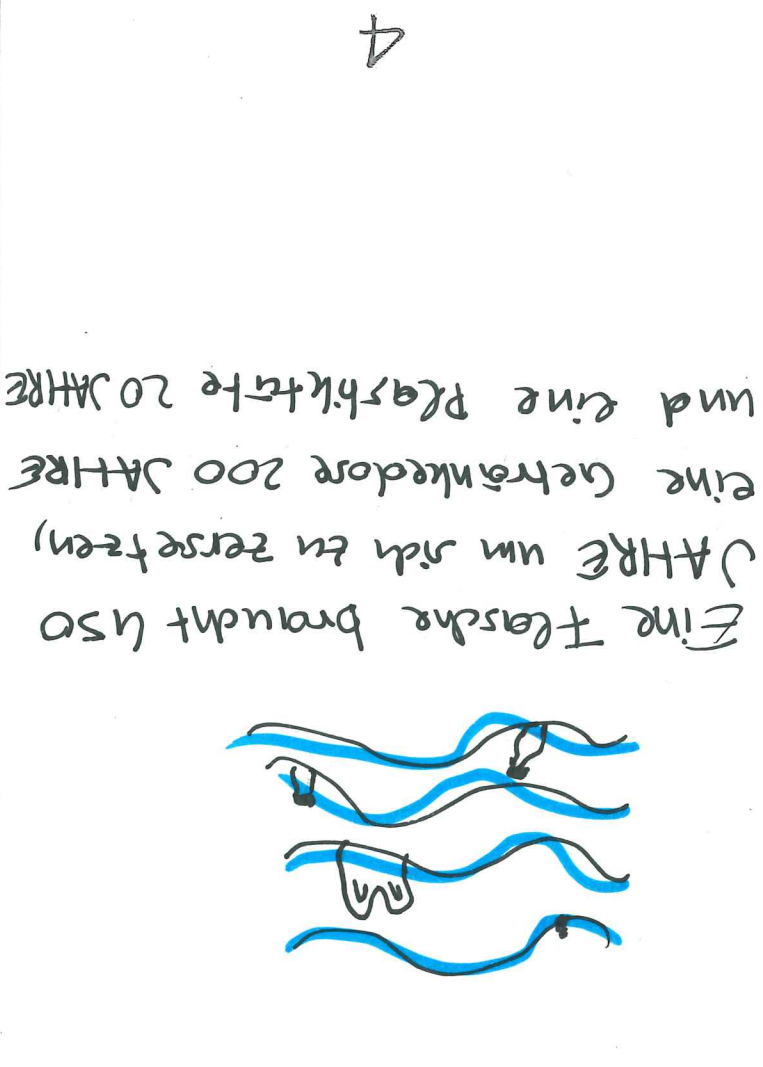 Eine Flasche braucht 450
JAHRE um sich zu zersetzen,
eine Getränkedose 200 JAHRE
und eine Plastiktüte 20 JAHRE
4